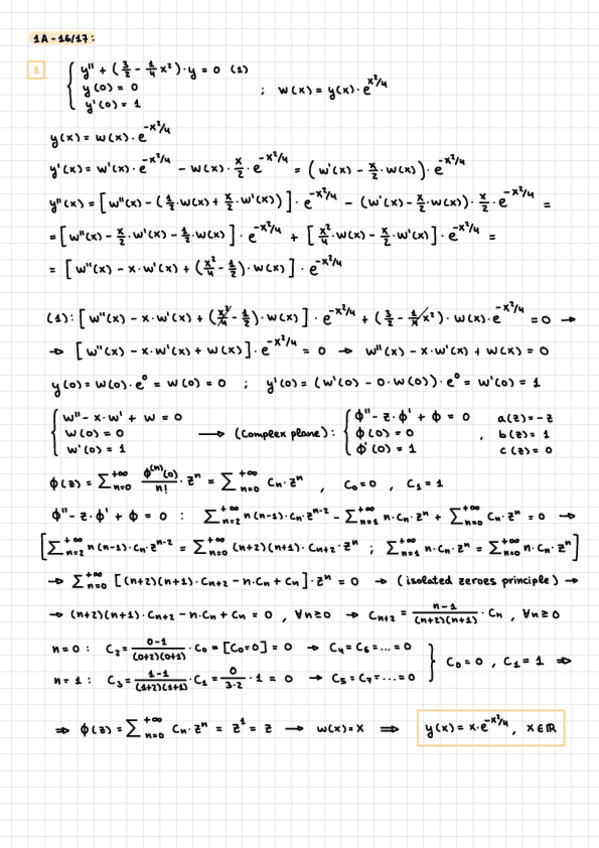 1A - 16/17:
1 { y'' + (3/2 - 1/4 x²)·y = 0 (1)
y(0) = 0 ; w(x) = y(x)·e^(x²/4)
y'(0) = 1
y(x) = w(x)·e^(-x²/4)
y'(x) = w'(x)·e^(-x²/4) - w(x)·x/2·e^(-x²/4) = (w'(x) - x/2·w(x))·e^(-x²/4)
y''(x) = [w''(x) - (1/2·w(x) + x/2·w'(x))]·e^(-x²/4) - (w'(x) - x/2·w(x))·x/2·e^(-x²/4) =
= [w''(x) - x/2·w'(x) - 1/2·w(x)]·e^(-x²/4) + [x²/4·w(x) - x/2·w'(x)]·e^(-x²/4) =
= [w''(x) - x·w'(x) + (x²/4 - 1/2)·w(x)]·e^(-x²/4)
(1): [w''(x) - x·w'(x) + (x²/4 - 1/2)·w(x)]·e^(-x²/4) + (3/2 - 1/4 x²)·w(x)·e^(-x²/4) = 0 →
→ [w''(x) - x·w'(x) + w(x)]·e^(-x²/4) = 0 → w''(x) - x·w'(x) + w(x) = 0
y(0) = w(0)·e⁰ = w(0) = 0 ; y'(0) = (w'(0) - 0·w(0))·e⁰ = w'(0) = 1
{ w'' - x·w' + w = 0 { ϕ'' - z·ϕ' + ϕ = 0 a(z) = -z
w(0) = 0 → (complex plane): ϕ(0) = 0 , b(z) = 1
w'(0) = 1 ϕ'(0) = 1 c(z) = 0
ϕ(z) = ∑_{n=0}^{+∞} ϕ^(n)(0)/n! · zⁿ = ∑_{n=0}^{+∞} Cn·zⁿ , C₀ = 0 , C₁ = 1
ϕ'' - z·ϕ' + ϕ = 0 : ∑_{n=2}^{+∞} n(n-1)·Cn·z^(n-2) - ∑_{n=1}^{+∞} n·Cn·zⁿ + ∑_{n=0}^{+∞} Cn·zⁿ = 0 →
[∑_{n=2}^{+∞} n(n-1)·Cn·z^(n-2) = ∑_{n=0}^{+∞} (n+2)(n+1)·C_{n+2}·zⁿ ; ∑_{n=1}^{+∞} n·Cn·zⁿ = ∑_{n=0}^{+∞} n·Cn·zⁿ]
→ ∑_{n=0}^{+∞} [(n+2)(n+1)·C_{n+2} - n·Cn + Cn]·zⁿ = 0 → (isolated zeroes principle) →
→ (n+2)(n+1)·C_{n+2} - n·Cn + Cn = 0 , ∀n≥0 → C_{n+2} = (n-1)/((n+2)(n+1)) · Cn , ∀n≥0
n=0: C₂ = (0-1)/((0+2)(0+1)) · C₀ = [C₀=0] = 0 → C₄ = C₆ = ... = 0
} C₀ = 0 , C₁ = 1 ⇒
n=1: C₃ = (1-1)/((1+2)(1+1)) · C₁ = 0/(3·2) · 1 = 0 → C₅ = C₇ = ... = 0
⇒ ϕ(z) = ∑_{n=0}^{+∞} Cn·zⁿ = z¹ = z → w(x) = x ⇒ y(x) = x·e^(-x²/4), x∈ℝ